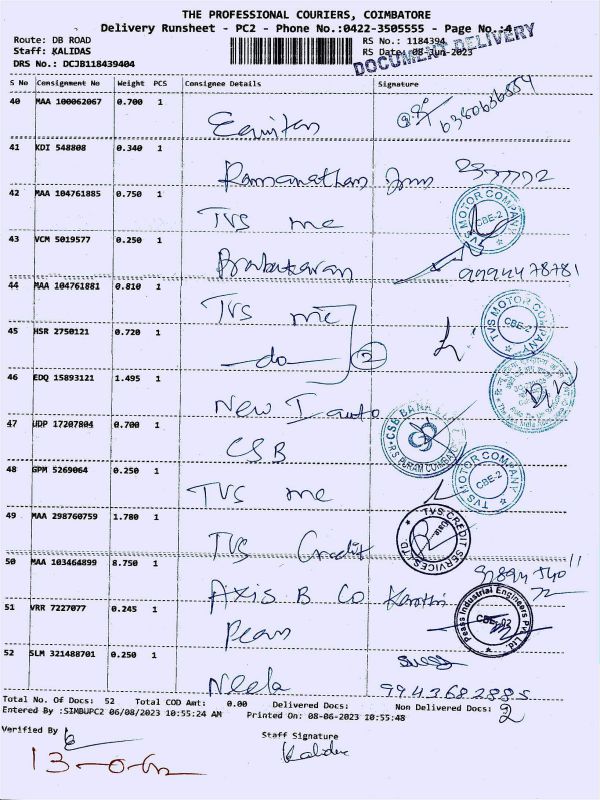 THE PROFESSIONAL COURIERS, COIMBATORE
Delivery Runsheet - PC2 - Phone No.:0422-3505555 - Page No.:4
Route: DB ROAD RS No.: 1184394
Staff: KALIDAS RS Date: 08-Jun-2023
DRS No.: DCJB118439404 DOCUMENT DELIVERY
S No Consignment No Weight PCS Consignee Details Signature
40 MAA 100062067 0.700 1
Equitas
41 KDI 548808 0.340 1
Ramanathan
42 MAA 104761885 0.750 1
TVS mc TVS MOTOR COMPANY CBE-2
43 VCM 5019577 0.250 1
Prabakaran
44 MAA 104761881 0.810 1
TVS mc TVS MOTOR COMPANY CBE-2
45 HSR 2750121 0.720 1
do 2
46 EDQ 15893121 1.495 1
New I auto
47 UDP 17207804 0.700 1
CSB CSB BANK RS PURAM COIMBATORE
48 GPM 5269064 0.250 1
TVS mc TVS MOTOR COMPANY CBE-2
49 MAA 298760759 1.780 1
TVS Credit TVS CREDIT SERVICES LTD
50 MAA 103464899 8.750 1
Axis B Co
51 VRR 7227077 0.245 1
Peass Peass Industrial Engineers Pvt. Ltd. CBE-02
52 SLM 321488701 0.250 1
Neela 9943682885
Total No. Of Docs: 52 Total COD Amt: 0.00 Delivered Docs: Non Delivered Docs: 2
Entered By :SIMBUPC2 06/08/2023 10:55:24 AM Printed On: 08-06-2023 10:55:48
Verified By Staff Signature